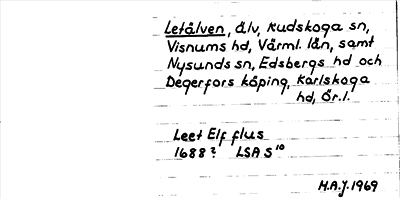 Letälven, älv, Rudskoga sn,
Visnums hd, Värml. län, samt
Nysunds sn, Edsbergs hd och
Degerfors köping, Karlskoga
hd, Ör. l.
Leet Elf flus
1688? LSA S¹⁰
H.A.J. 1969